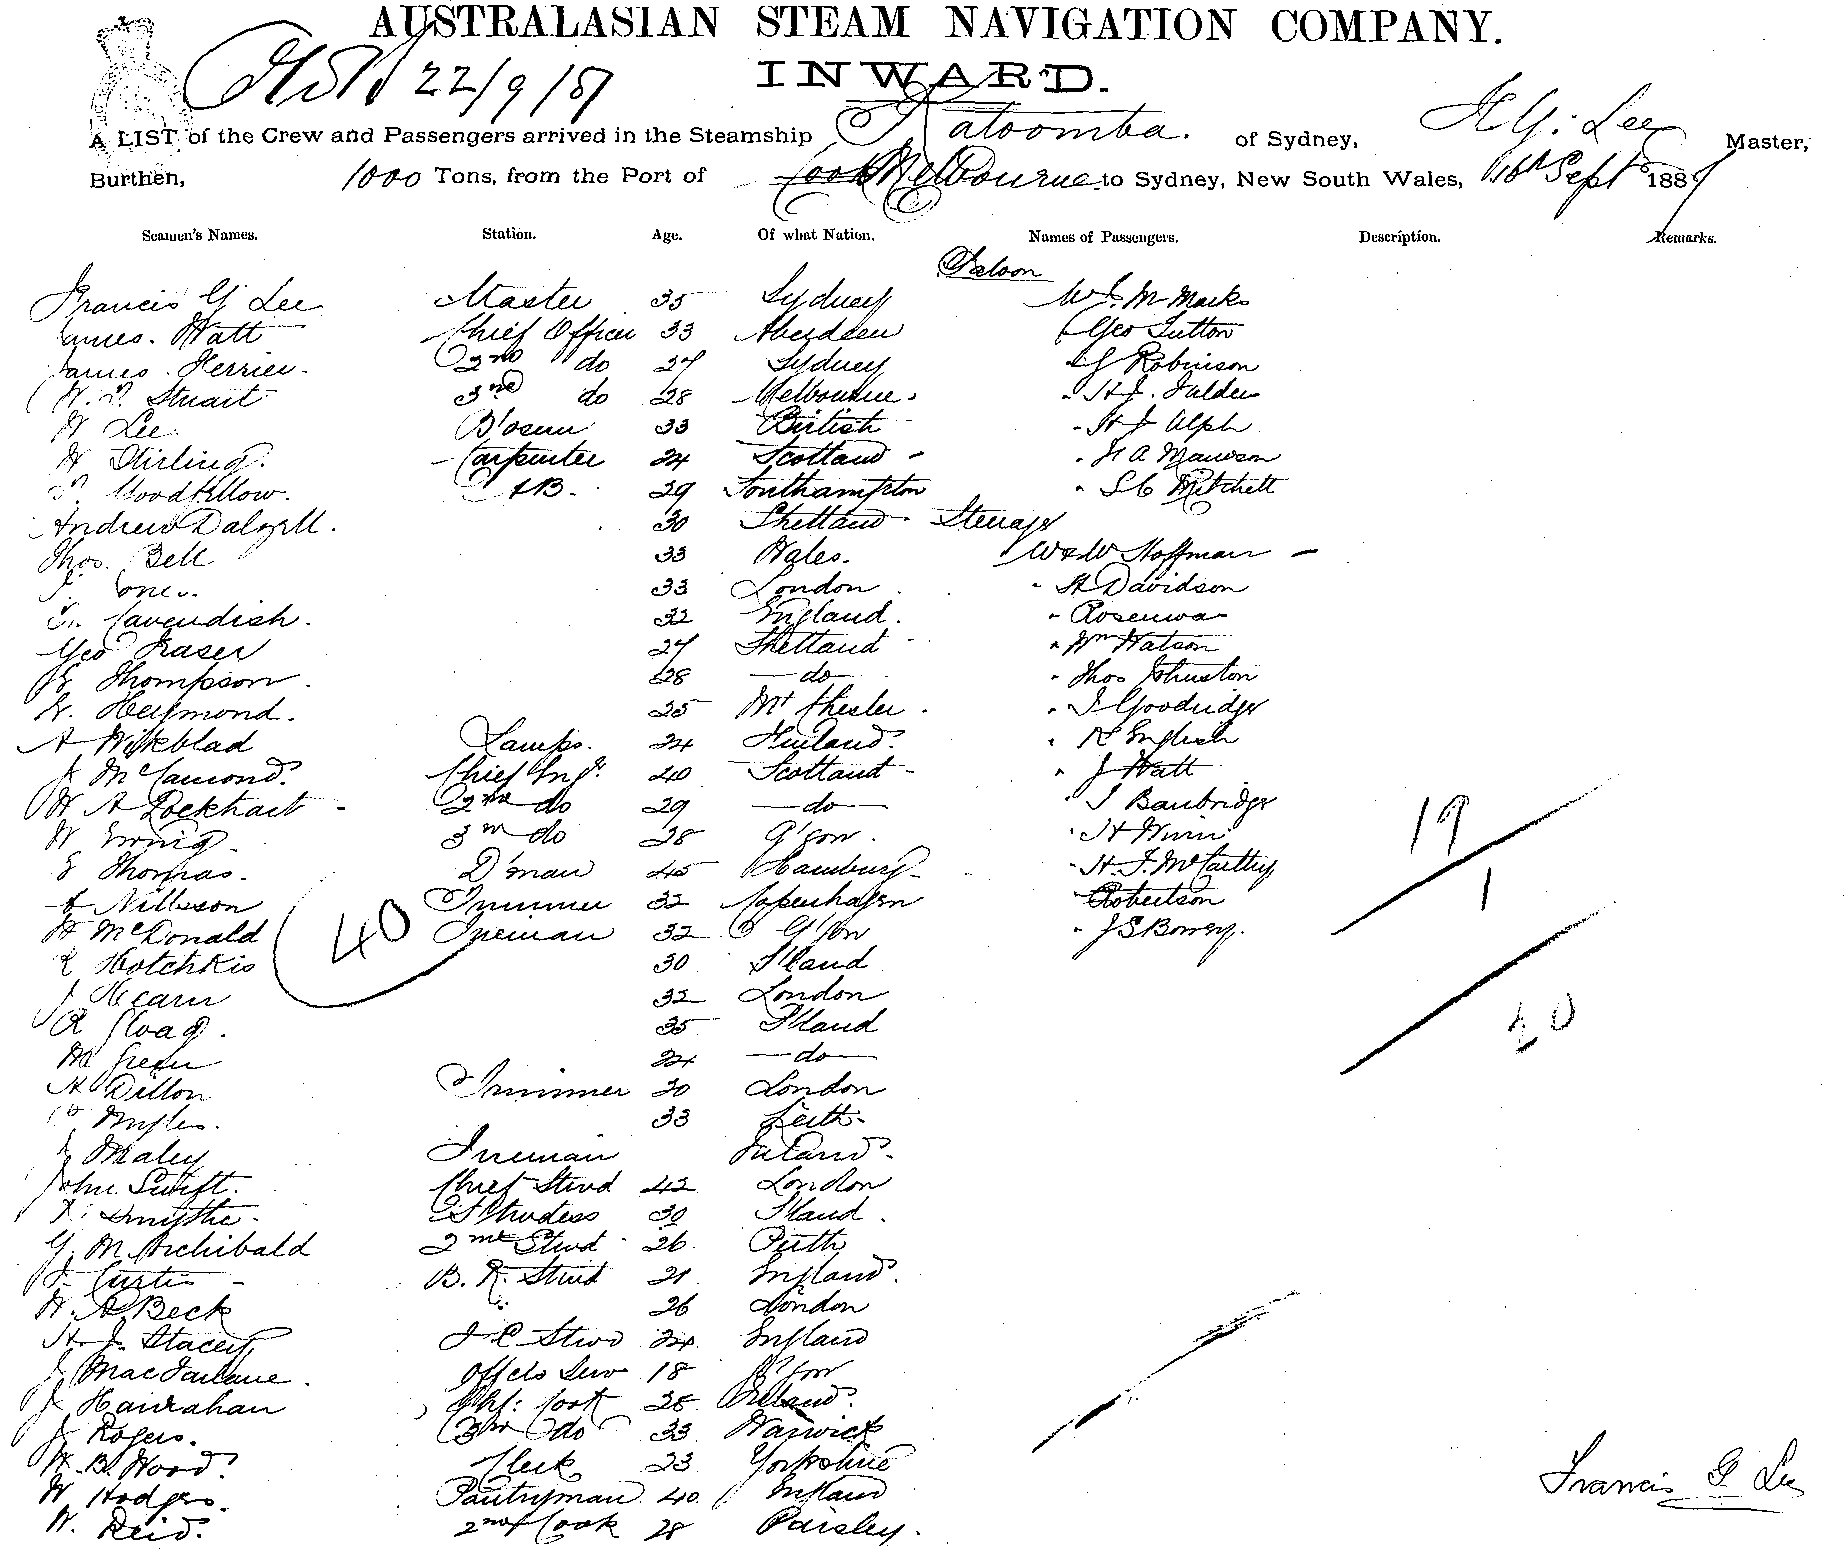 AUSTRALASIAN STEAM NAVIGATION COMPANY.
22/9/87 INWARD.
A LIST of the Crew and Passengers arrived in the Steamship Katoomba. of Sydney, F G. Lee Master,
Burthen, 1000 Tons, from the Port of Melbourne to Sydney, New South Wales, 16th Sept 1887
Seamen's Names. Station. Age. Of what Nation. Names of Passengers. Description. Remarks.
Saloon
Francis G Lee Master 35 Sydney W. J. M Marks
James. Watt Chief Officer 33 Aberdeen Geo Sutton
James. Herrier. 2nd do 27 Sydney Robinson
Stuart 3rd do 28 Melbourne. H. J.
W Lee B'osun 33 British H J Alph
W Stirling. Carpenter 24 Scotland F A Mawson
Woodfellow. AB. 29 Southampton S C Mitchell
Andrew Dalzell. 30 Shetland Steerage
Thos. Bell 33 Wales. W & W Hoffman
33 London H Davidson
Cavendish. 32 England. Rosenwa
Geo Fraser 27 Shetland Wm Watson
Thompson. 28 do Thos Johnston
W. Heymond. 25 M Chester. J Goodridge
A Wikblad Lamps. 24 Finland. R English
J McCamond. Chief Engr. 40 Scotland J Watt
W A Lockhart 2nd do 29 do J Banbridge 19
W Ewing 3rd do 28 G'gow. H Winn
E Thomas. D'man 45 Hamburg H. J. McCarthy
Nillsson Trimmer 32 Copenhagen Robertson 1
H McDonald 40 Fireman 32 G'gow J S Bowey.
R Hotchkis 30 S'land
J Hearn 32 London
R Gloag. 35 S'land 20
M Green 24 do
A Dillon Trimmer 30 London
33 Leith.
J Maley Fireman Ireland.
John Swift. Chief Stwd 42 London
Smythe. Stwdess 30 S'land.
G. M Archibald 2nd Stwd 26 Perth
J. Curtis B. R. Stwd 21 England.
W. A Beck 26 London
H. J. Stacey, Stwd 24 England
J MacFarlane. Offcrs Serv 18 G'gow
J Hanrahan Chf: Cook 28 Ireland.
J Rogers. 3rd do 33 Warwick
W. B. Wood. Clerk 23 Yorkshire
W Hodges. Pantryman 40 England Francis G Lee
W. Reid. 2nd Cook 28 Paisley.